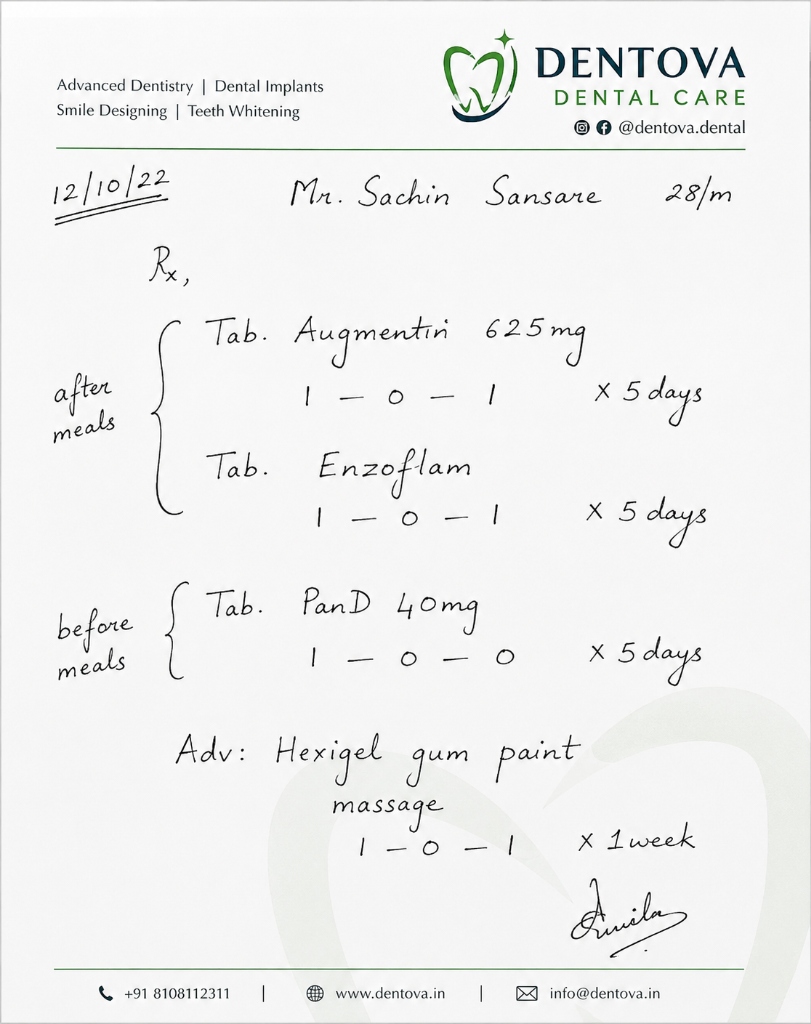 Advanced Dentistry | Dental Implants
Smile Designing | Teeth Whitening
DENTOVA
DENTAL CARE
@dentova.dental
12/10/22 Mr. Sachin Sansare 28/m
Rx,
after meals
Tab. Augmentin 625mg
1 — 0 — 1 x 5 days
Tab. Enzoflam
1 — 0 — 1 x 5 days
before meals
Tab. PanD 40mg
1 — 0 — 0 x 5 days
Adv: Hexigel gum paint
massage
1 — 0 — 1 x 1 week
+91 8108112311 | www.dentova.in | info@dentova.in